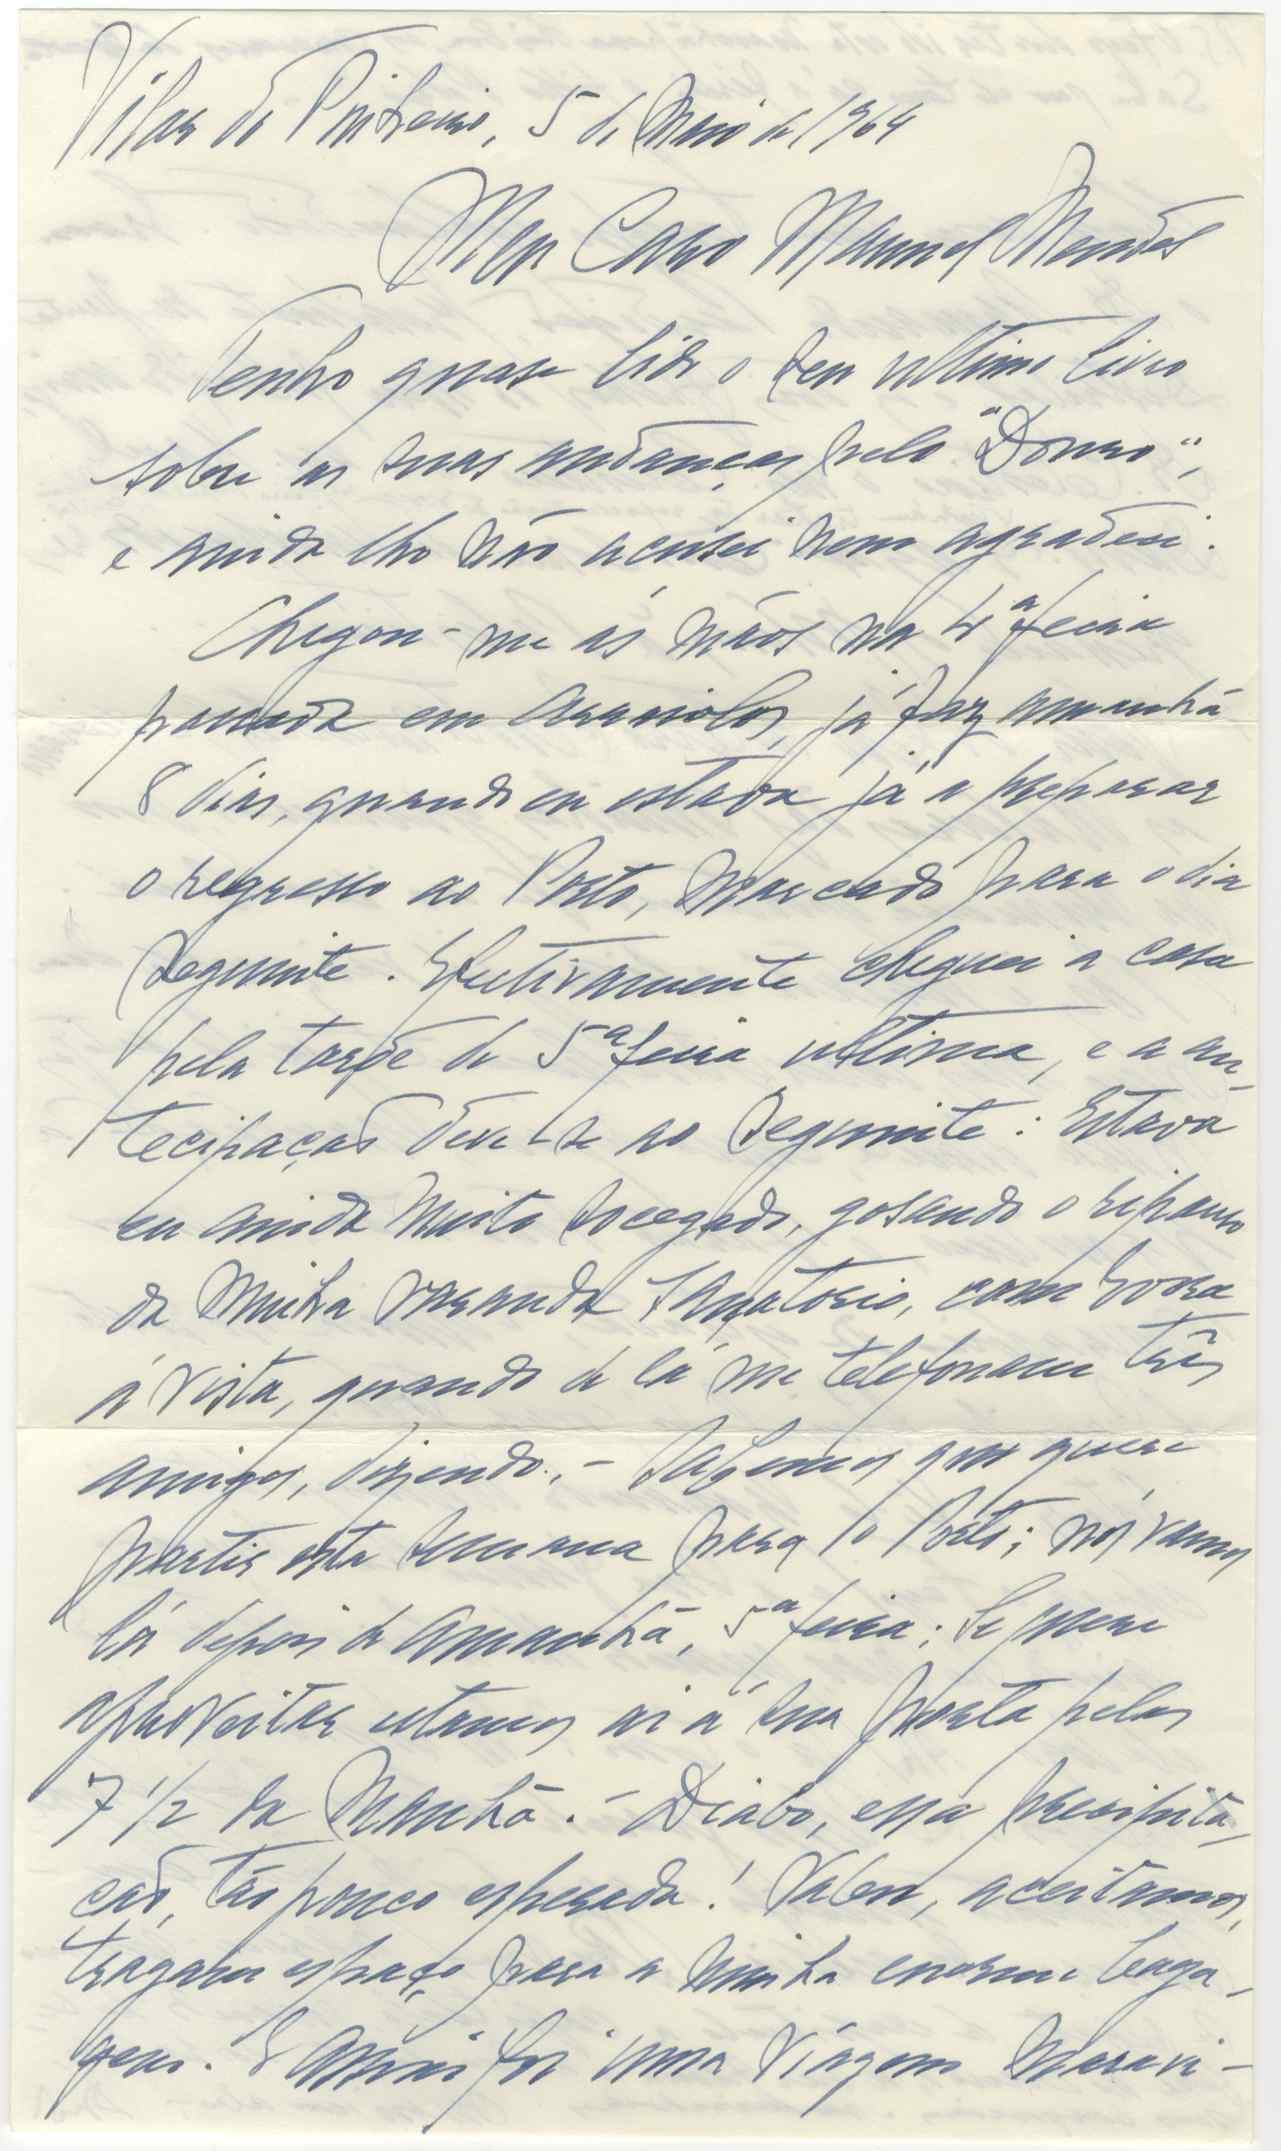 Vilar do Pinheiro, 5 de Maio de 1964
Meu Caro Manuel Mendes
Tenho quase lido o seu ultimo livro
sobre as suas andanças pelo "Douro",
e ainda lho não acusei nem agradeci.
Chegou-me ás mãos na 4ª feira
passada em Arraiolos, já faz amanhã
8 dias, quando eu estava já a preparar
o regresso ao Porto, marcado para o dia
seguinte. Efectivamente cheguei a casa
pela tarde de 5ª feira ultima, e a an-
tecipação deve-se ao seguinte: Estava
eu ainda muito socegado, gosando o repouso
da minha varanda sanatorio, com Evora
á vista, quando de lá me telefonam três
amigos, dizendo: - Sabemos que quere
partir esta semana para o Porto; nós vamos
lá depois de amanhã, 5ª feira; se quere
aproveitar estamos ai á sua porta pelas
7 1/2 da manhã. - Diabo, essa precipita-
ção, tão pouco esperada! Valeu, aceitamos,
tragam espaço para a minha enorme baga-
gem. E assim foi uma viagem maravi-